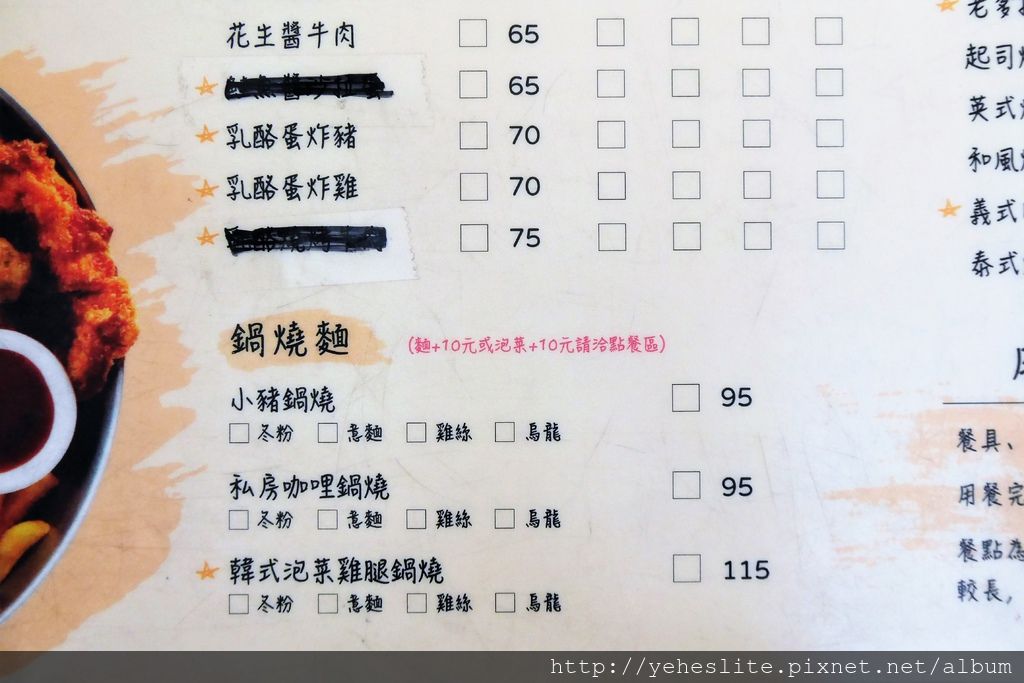 花生醬牛肉 65
65
乳酪蛋炸豬 70
乳酪蛋炸雞 70
75
鍋燒麵 (麵+10元或泡菜+10元請洽點餐區)
小豬鍋燒 95
冬粉 意麵 雞絲 烏龍
私房咖哩鍋燒 95
冬粉 意麵 雞絲 烏龍
韓式泡菜雞腿鍋燒 115
冬粉 意麵 雞絲 烏龍
老爹
起司
英式
和風
義式
泰式
餐具、
用餐完
餐點為
較長，
http://yeheslite.pixnet.net/album